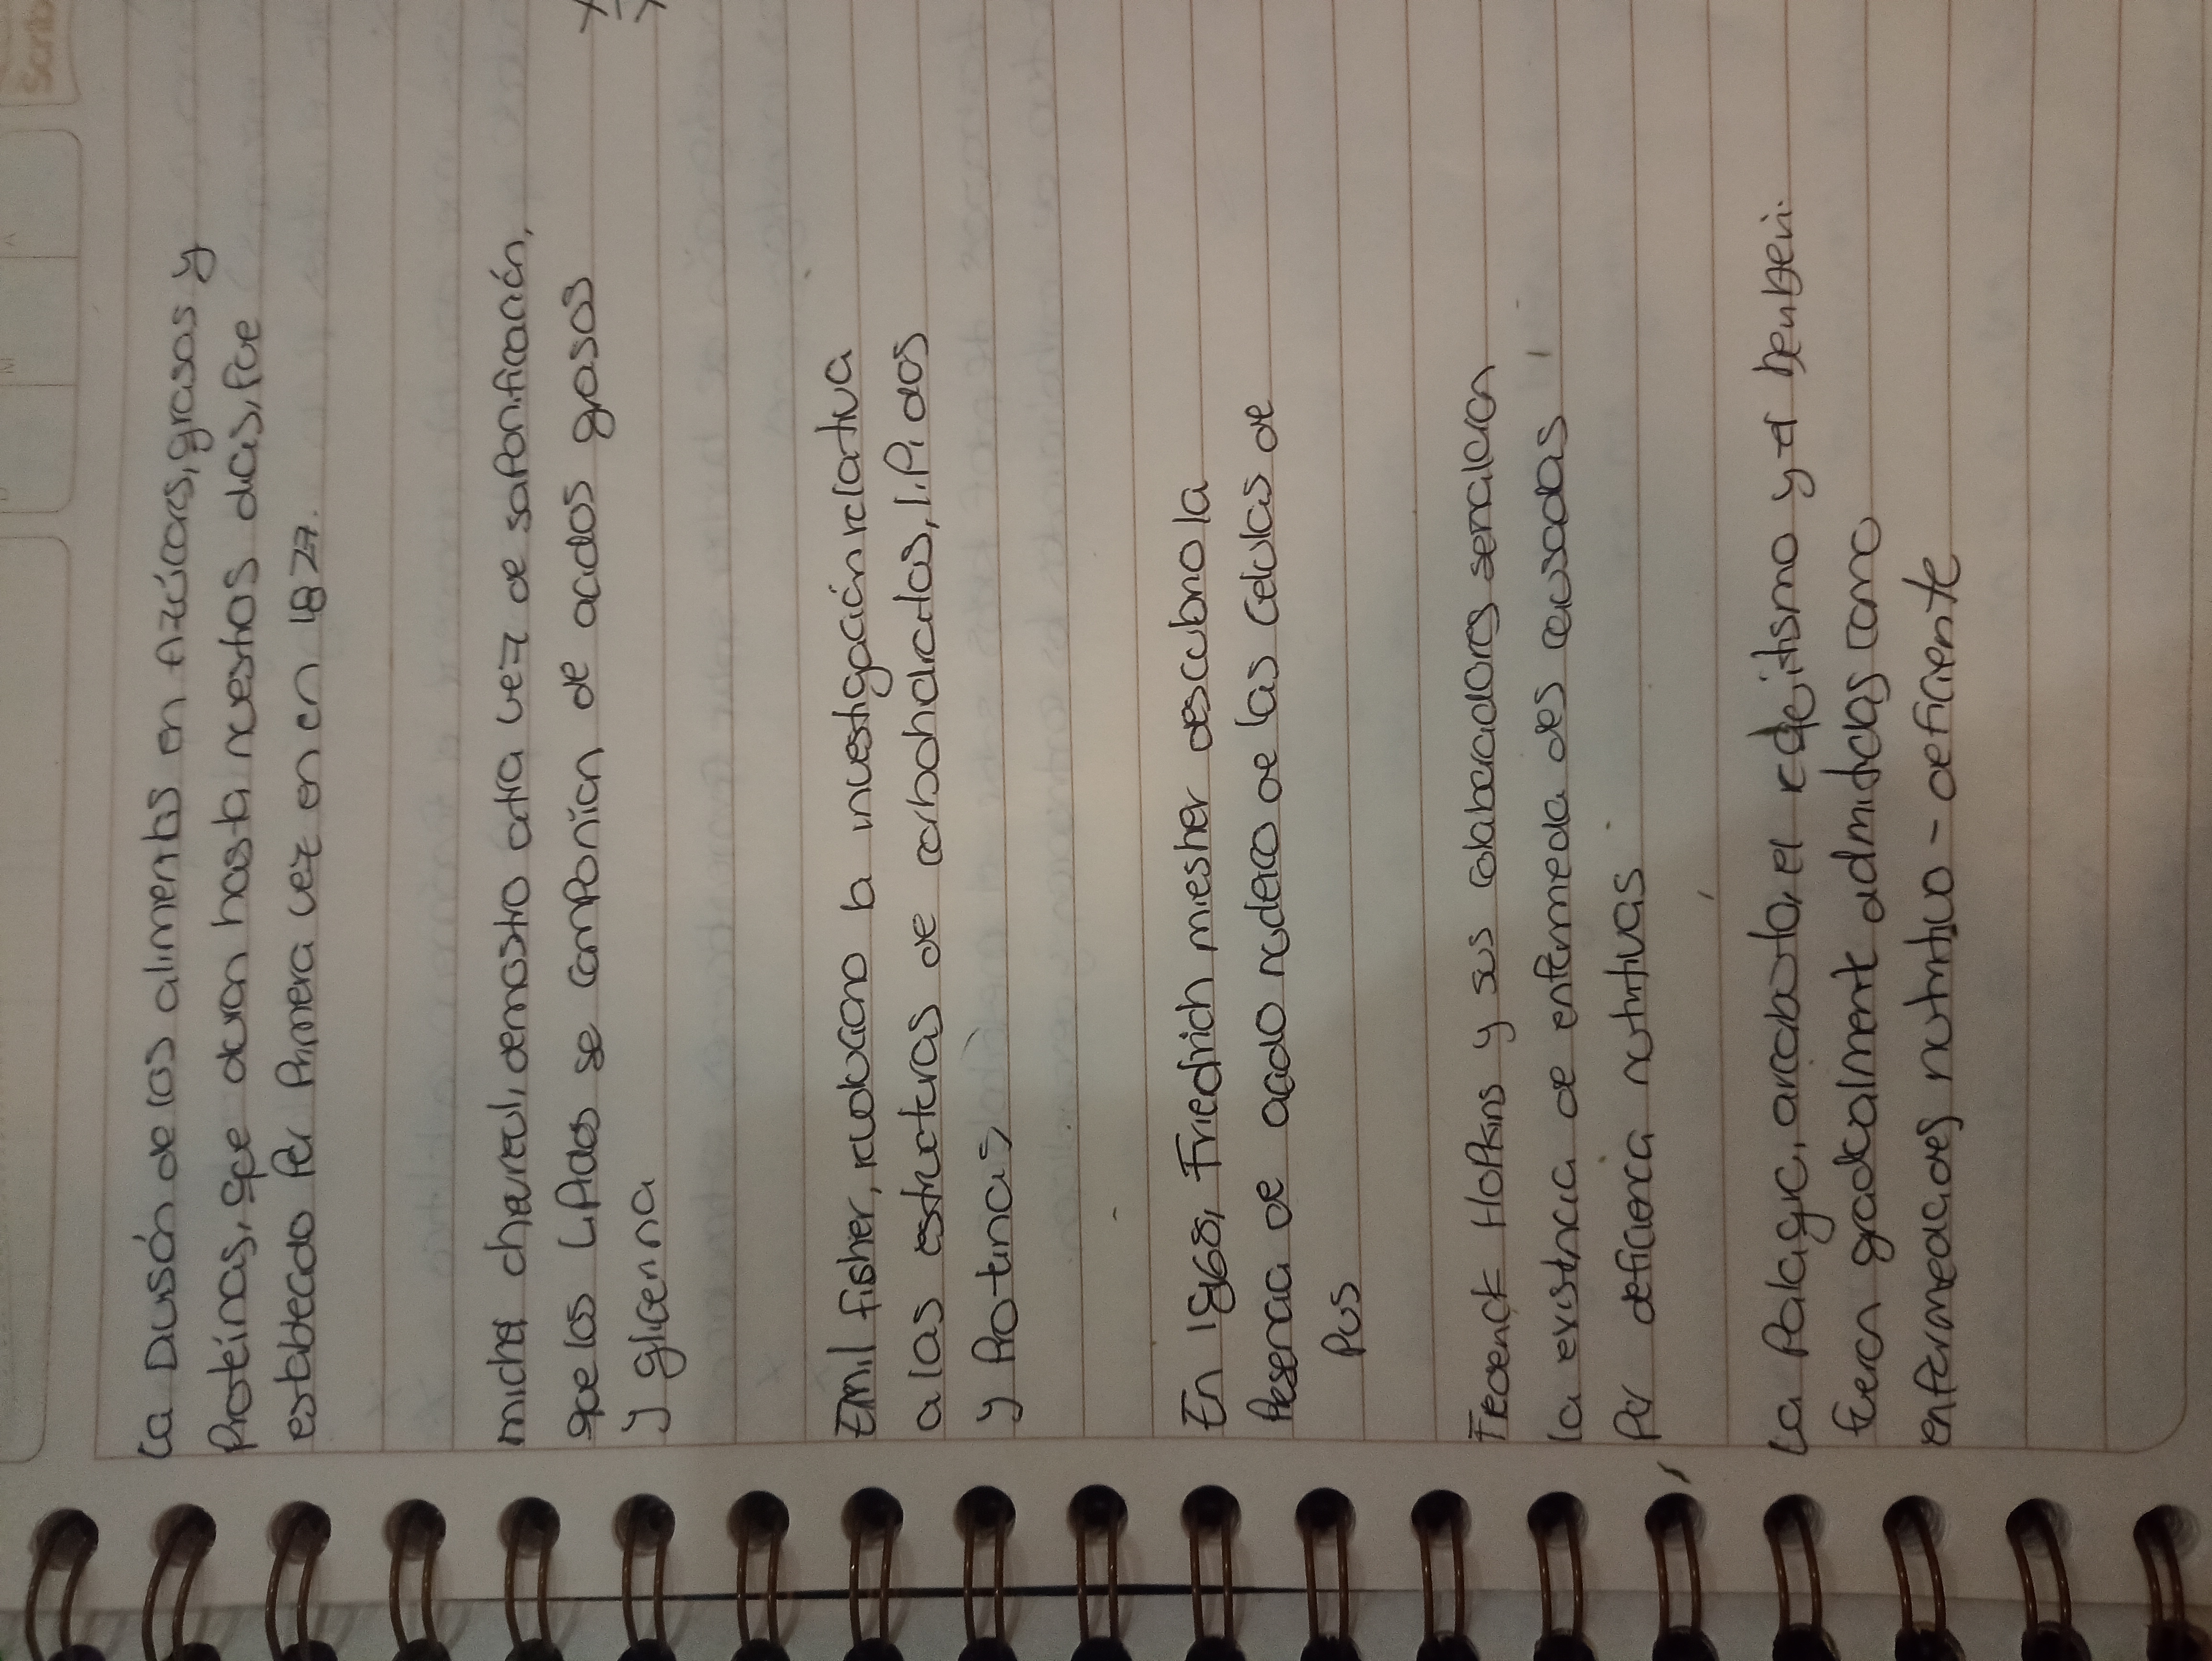 La División de los alimentos en Azúcares, grasas y
Proteínas, que duran hasta nuestros días, fue
establecido Por Primera vez en en 1827.
michel chevreul, demostro otra vez de saponificación,
que los Lípidos se componían de acidos grasos
y glicerina
Emil fisher, ruduciono la investigación relativa
a las estructuras de carbohidratos, lipidos
y Proteinas,
En 1968, Friedrich miesher descubrio la
Presencia de acido nucleico de las celulas de
Pus
Frederick Hopkins y sus colaboradores señalaron
la existencia de enfermeda des causadas
Por deficienca nutritivas
La Palagra, arcabuto, el redjitismo y el beriberi.
fueron gradualmente admitidas como
enfermedades nutritivo - deficiente